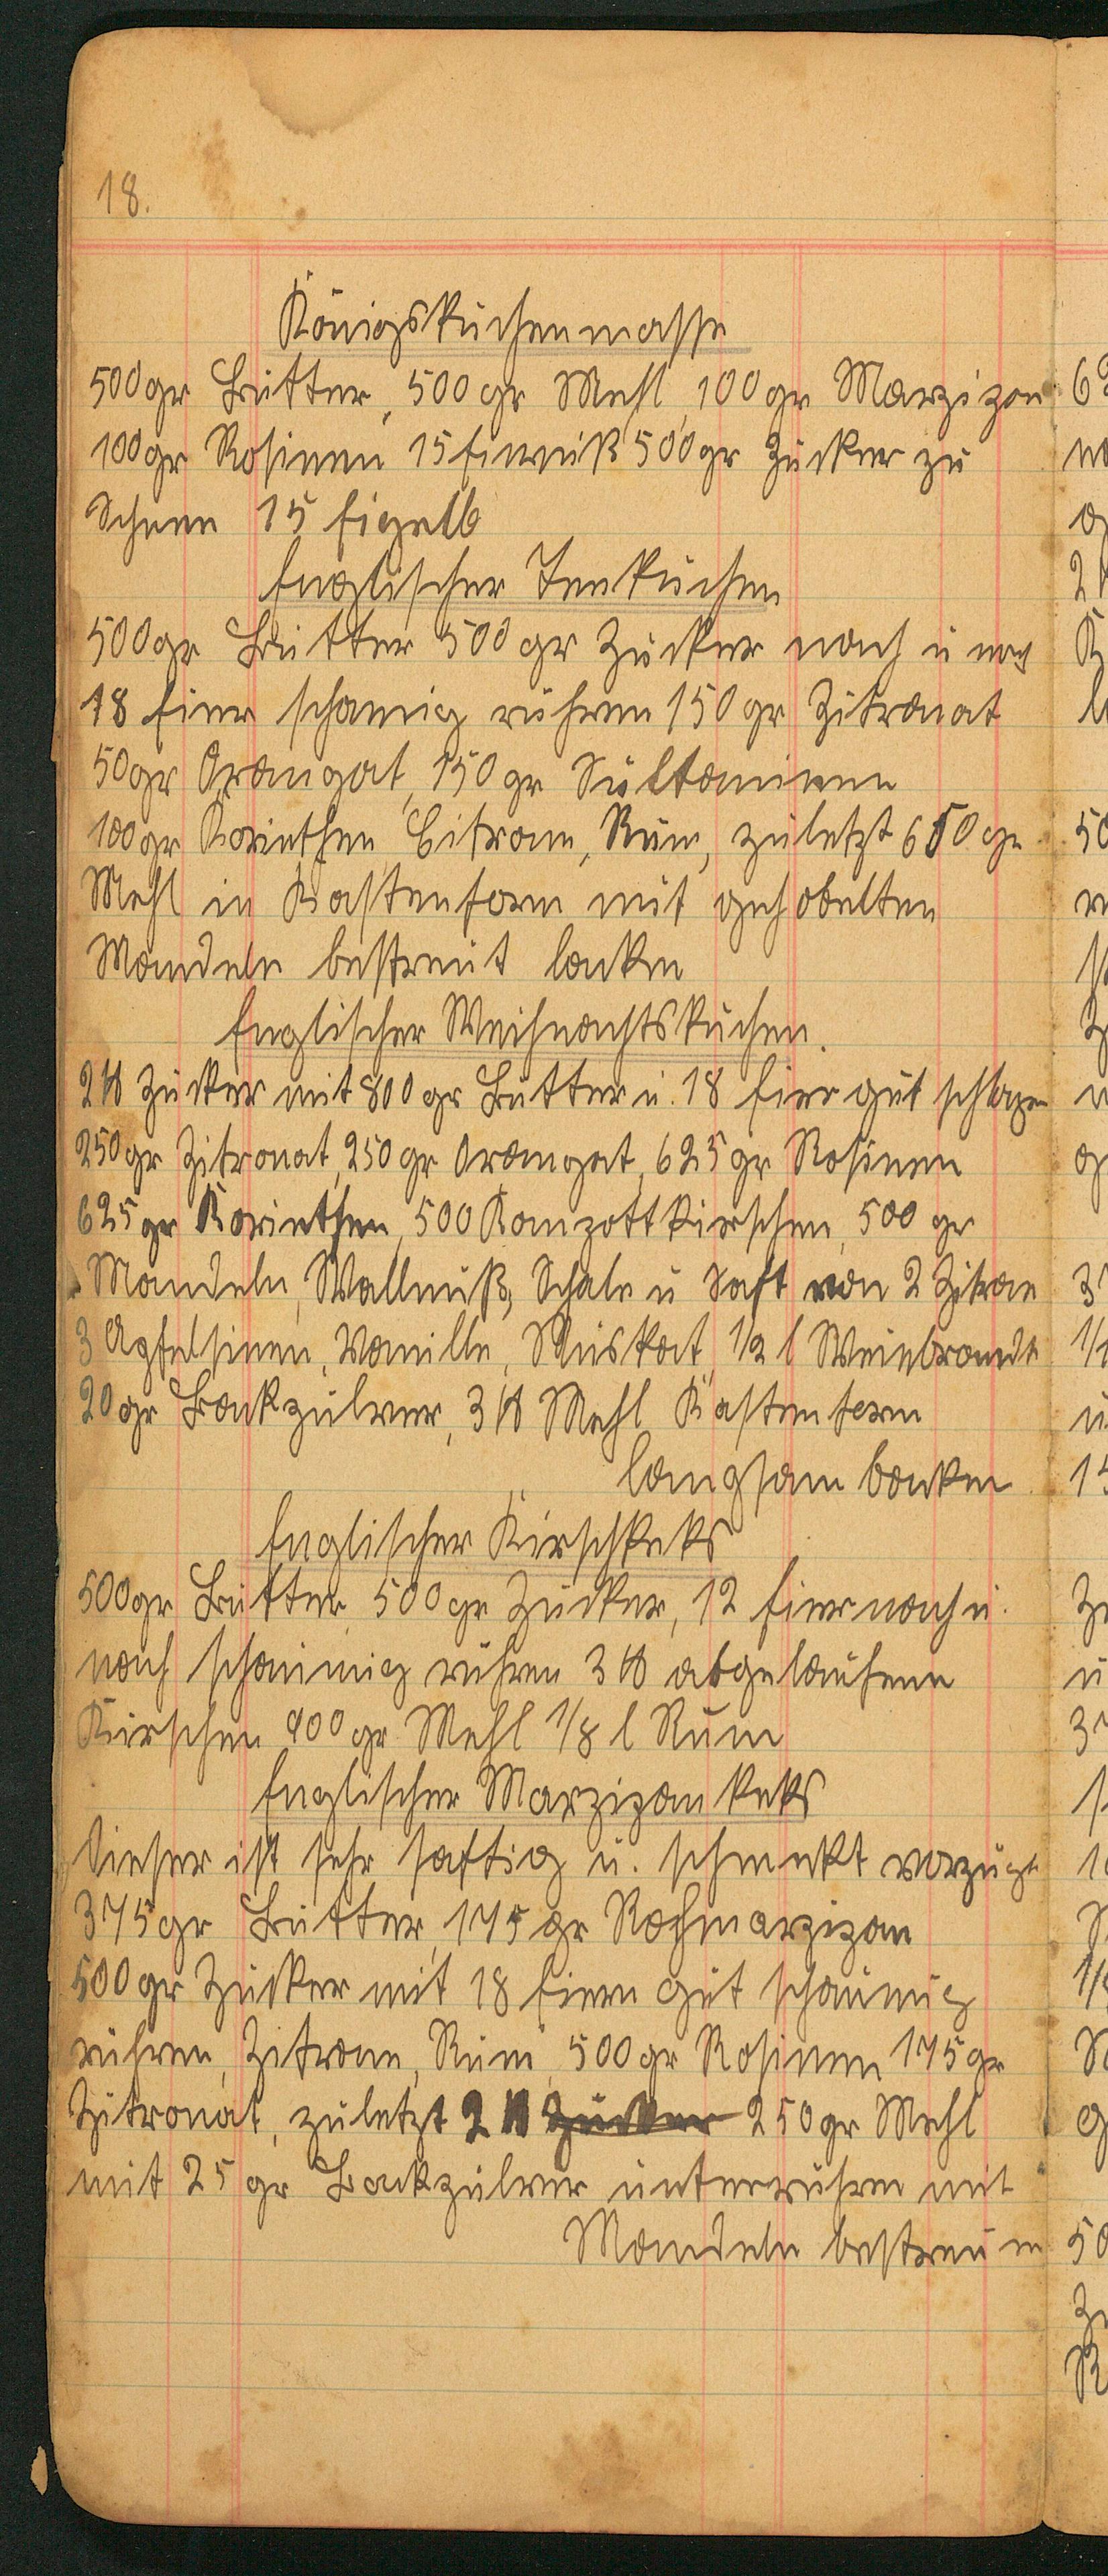 18.
Königskuchenmasse
500gr Butter, 500 gr Mehl, 100gr Marzipan
100gr Rosinen 15 Eiweiß 500gr Zucker zu
Schnee 15 Eigelb
Englischer Teekuchen
500gr Butter 500 gr Zucker nach u nach
18 Eier schamig rühren 150 gr Zitronat
50gr Orangat, 150 gr Sultaninen
100gr Korinthen Citrone, Rum, zuletzt 650 gr
Mehl in Kastenform mit gehobelten
Mandeln bestreut backen
Englischer Weihnachtskuchen.
2 ℔ Zucker mit 800 gr Butter u. 18 Eier gut schlagen
250gr Zitronat, 250 gr Orangat, 625 gr Rosinen
625 gr Korinthen, 500 Kompottkirschen, 500 gr
Mandeln, Wallnuß, Schale u Saft von 2 Zitrone
3 Apfelsinen, Vanille, Muskat, 1/2 l Weinbrandt
20 gr Backpulver, 3 ℔ Mehl Kastenform
langsam backen
Englischer Kirschkeks
500gr Butter, 500 gr Zucker, 12 Eier nach u.
nach schaumig rühren 3 ℔ abgelaufene
Kirschen 900 gr Mehl 1/8 l Rum
Englischer Marzipankeks
Dieser ist sehr saftig u. schmekt vorzügl
375gr Butter, 175 gr Rohmarzipan
500 gr Zucker mit 18 Eiern gut schaumig
rühren, Zitrone, Rum, 500 gr Rosinen 175 gr
Zitronat, zuletzt 2 ℔ Zucker 250 gr Mehl
mit 25 gr Backpulver unterrühren mit
Mandeln bestreuen